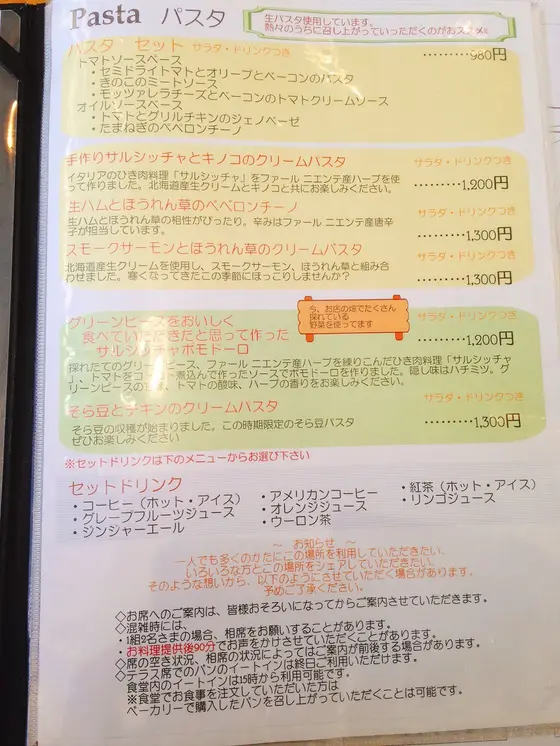 Pasta パスタ
生パスタ使用しています。
熱々のうちに召し上がっていただくのがおススメ!!
パスタ セット サラダ・ドリンクつき ………980円
トマトソースベース
・セミドライトマトとオリーブとベーコンのパスタ
・きのこのミートソース
・モッツァレラチーズとベーコンのトマトクリームソース
オイルソースベース
・トマトとグリルチキンのジェノベーゼ
・たまねぎのペペロンチーノ
手作りサルシッチャとキノコのクリームパスタ サラダ・ドリンクつき
イタリアのひき肉料理「サルシッチャ」をファール ニエンテ産ハーブを使
って作りました。北海道産生クリームとキノコと共にお楽しみください。 ………1,200円
生ハムとほうれん草のペペロンチーノ サラダ・ドリンクつき
生ハムとほうれん草の相性がぴったり。辛みはファール ニエンテ産唐辛
子が担当しています。 ………1,300円
スモークサーモンとほうれん草のクリームパスタ サラダ・ドリンクつき
北海道産生クリームを使用し、スモークサーモン、ほうれん草と組み合
わせました。寒くなってきたこの季節にほっこりしませんか? ………1,300円
今、お店の畑でたくさん
採れている
野菜を使ってます
グリーンピースをおいしく
食べていただきたと思って作った
サルシッチャポモドーロ
サラダ・ドリンクつき
………1,200円
採れたてのグリーンピース、ファール ニエンテ産ハーブを練りこんだひき肉料理「サルシッチャ
」、トマトをコトコト煮込んで作ったソースでポモドーロを作りました。隠し味はハチミツ。グ
リーンピースの
、トマトの酸味、ハーブの香りをお楽しみください。
そら豆とチキンのクリームパスタ サラダ・ドリンクつき
そら豆の収穫が始まりました。この時期限定のそら豆パスタ
ぜひお楽しみください ………1,300円
※セットドリンクは下のメニューからお選び下さい
セットドリンク
・コーヒー(ホット・アイス) ・アメリカンコーヒー ・紅茶(ホット・アイス)
・グレープフルーツジュース ・オレンジジュース ・リンゴジュース
・ジンジャーエール ・ウーロン茶
~ お知らせ ~
一人でも多くのかたにこの場所を利用していただきたい、
いろいろな方とこの場所をシェアしていただきたい、
そのような想いから、以下のようにさせていただく場合があります。
予めご了承ください。
◇お席へのご案内は、皆様おそろいになってからご案内させていただきます。
◇混雑時には、
・1組2名さまの場合、相席をお願いすることがあります。
・お料理提供後90分でお声をかけさせていただくことがあります。
◇席の空き状況、相席の状況によってはご案内が前後する場合があります。
◇テラス席でのパンのイートインは終日ご利用いただけます。
食堂内のイートインは15時から利用可能です。
※食堂でお食事を注文していただいた方は
ベーカリーで購入したパンを召し上がっていただくことは可能です。